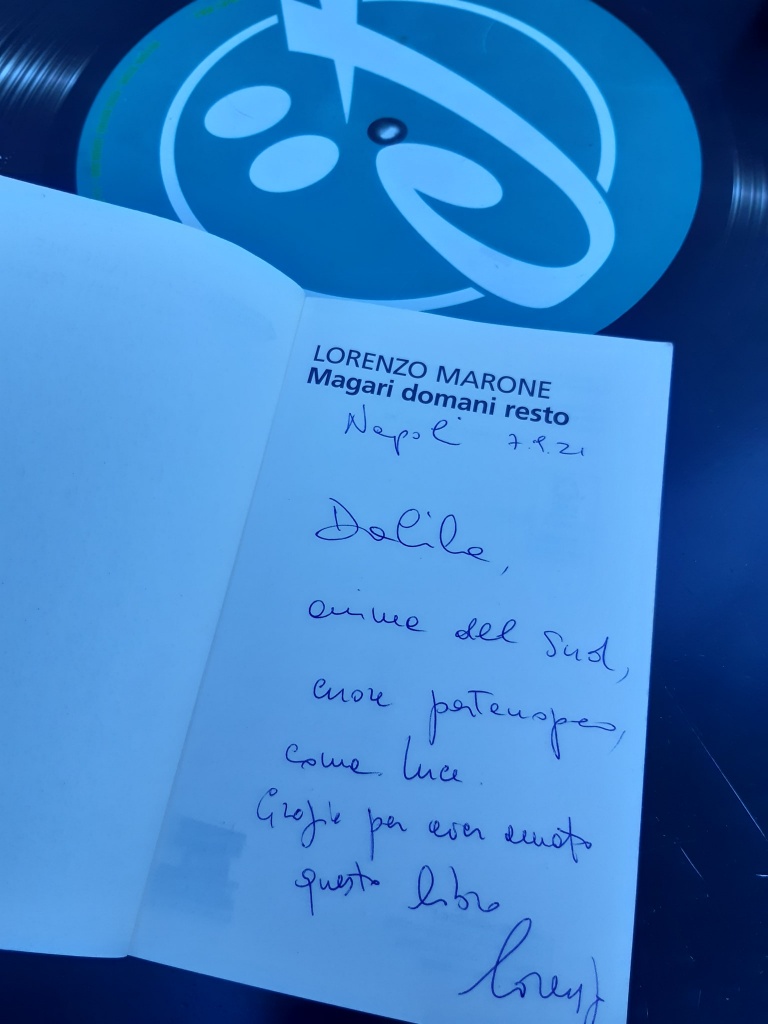 LORENZO MARONE
Magari domani resto
Napoli 7.9.21
Dalila,
anima del Sud,
cuore partenopeo,
come Luce.
Grazie per aver amato
questo libro
Lorenzo